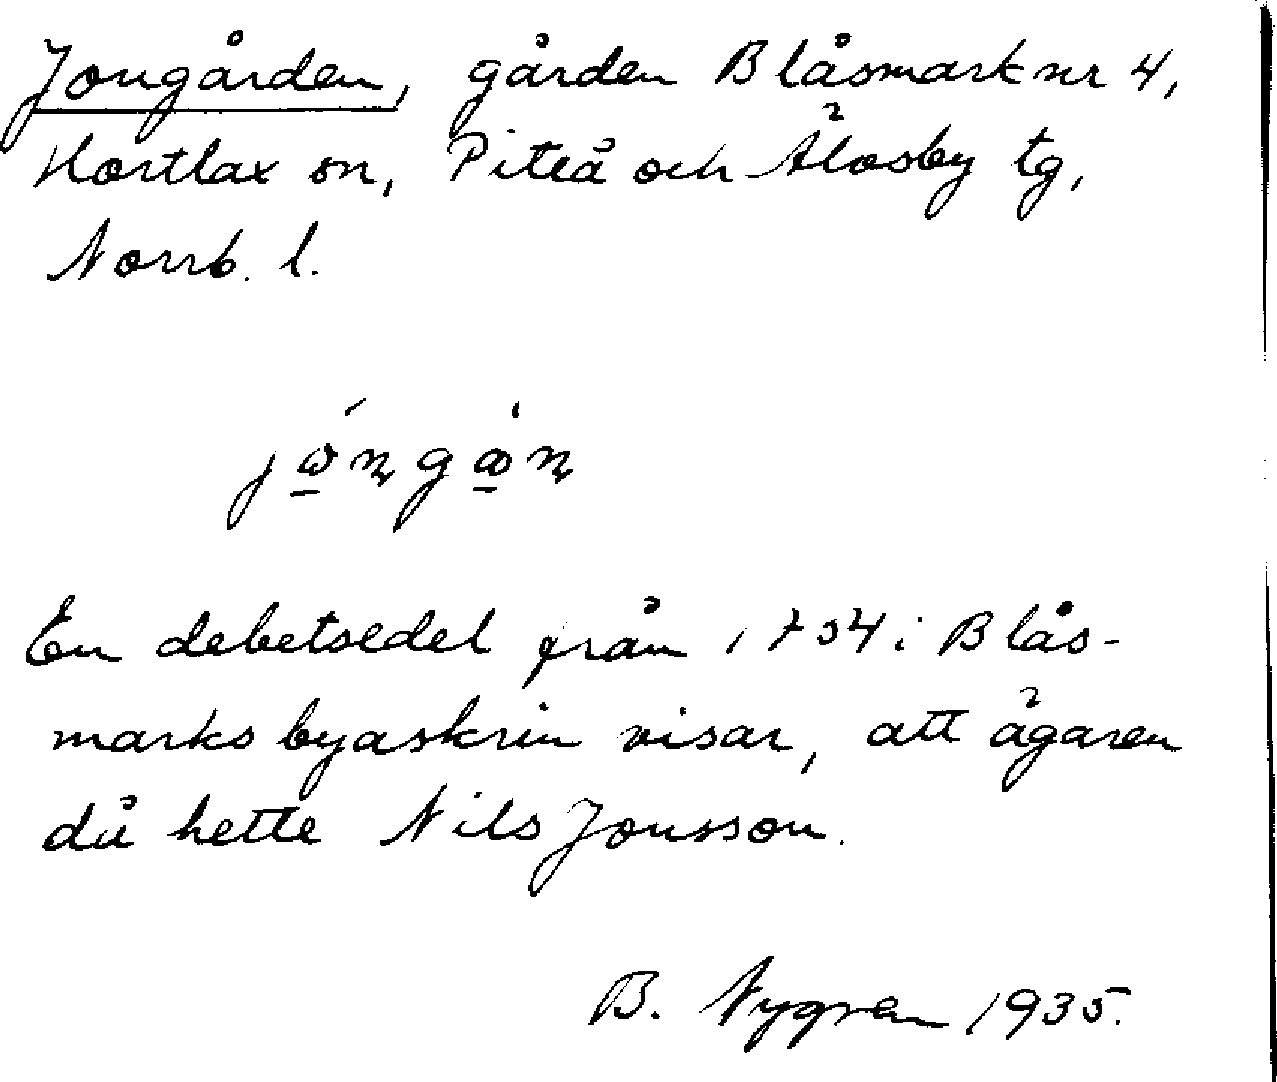 Jongården, gården Blåsmark nr 4,
Hortlax sn, Piteå och Älvsby tg,
Norrb. l.
En debetsedel från 1754 i Blås-
marks byaskrin visar, att ägaren
då hette Nils Jonsson.
B. Nygren 1935.